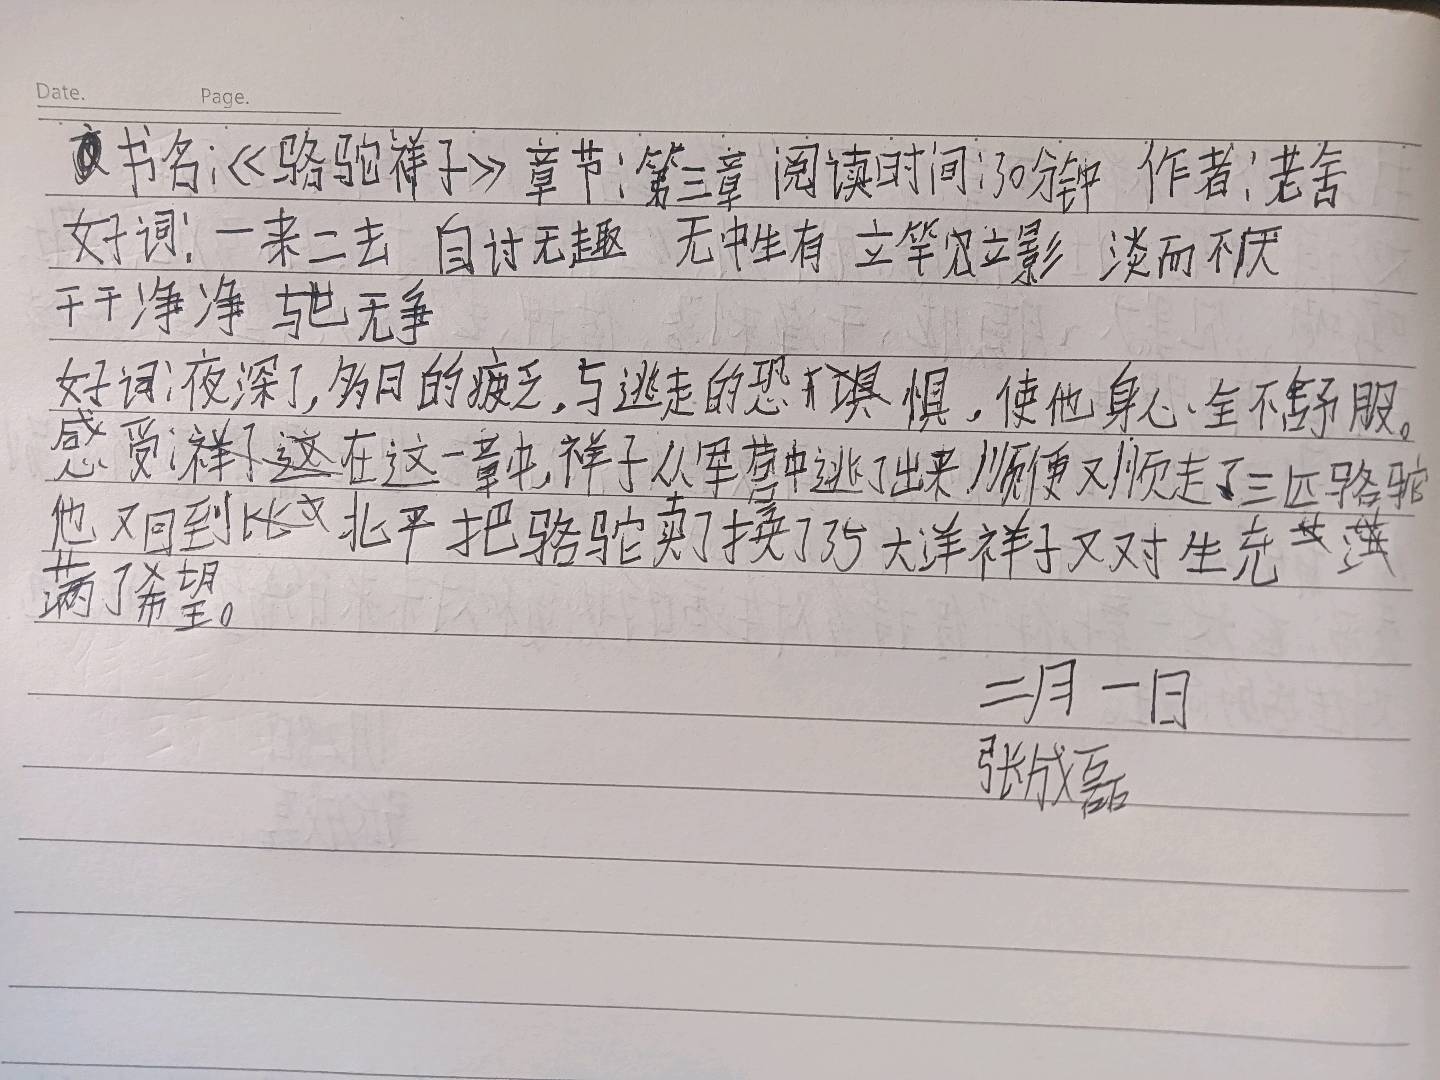 Date. Page.
书名:《骆驼祥子》 章节:第三章 阅读时间:30分钟 作者:老舍
好词: 一来二去 自讨无趣 无中生有 立竿见立影 淡而不厌
干干净净 与世无争
好词:夜深了,多日的疲乏,与逃走的恐惧,使他身心全不舒服。
感受:祥子在这一章中,祥子从军营中逃了出来顺便又顺走了三匹骆驼
他又回到北平把骆驼卖了换了35大洋祥子又对生充
满了希望。
二月一日
张成磊